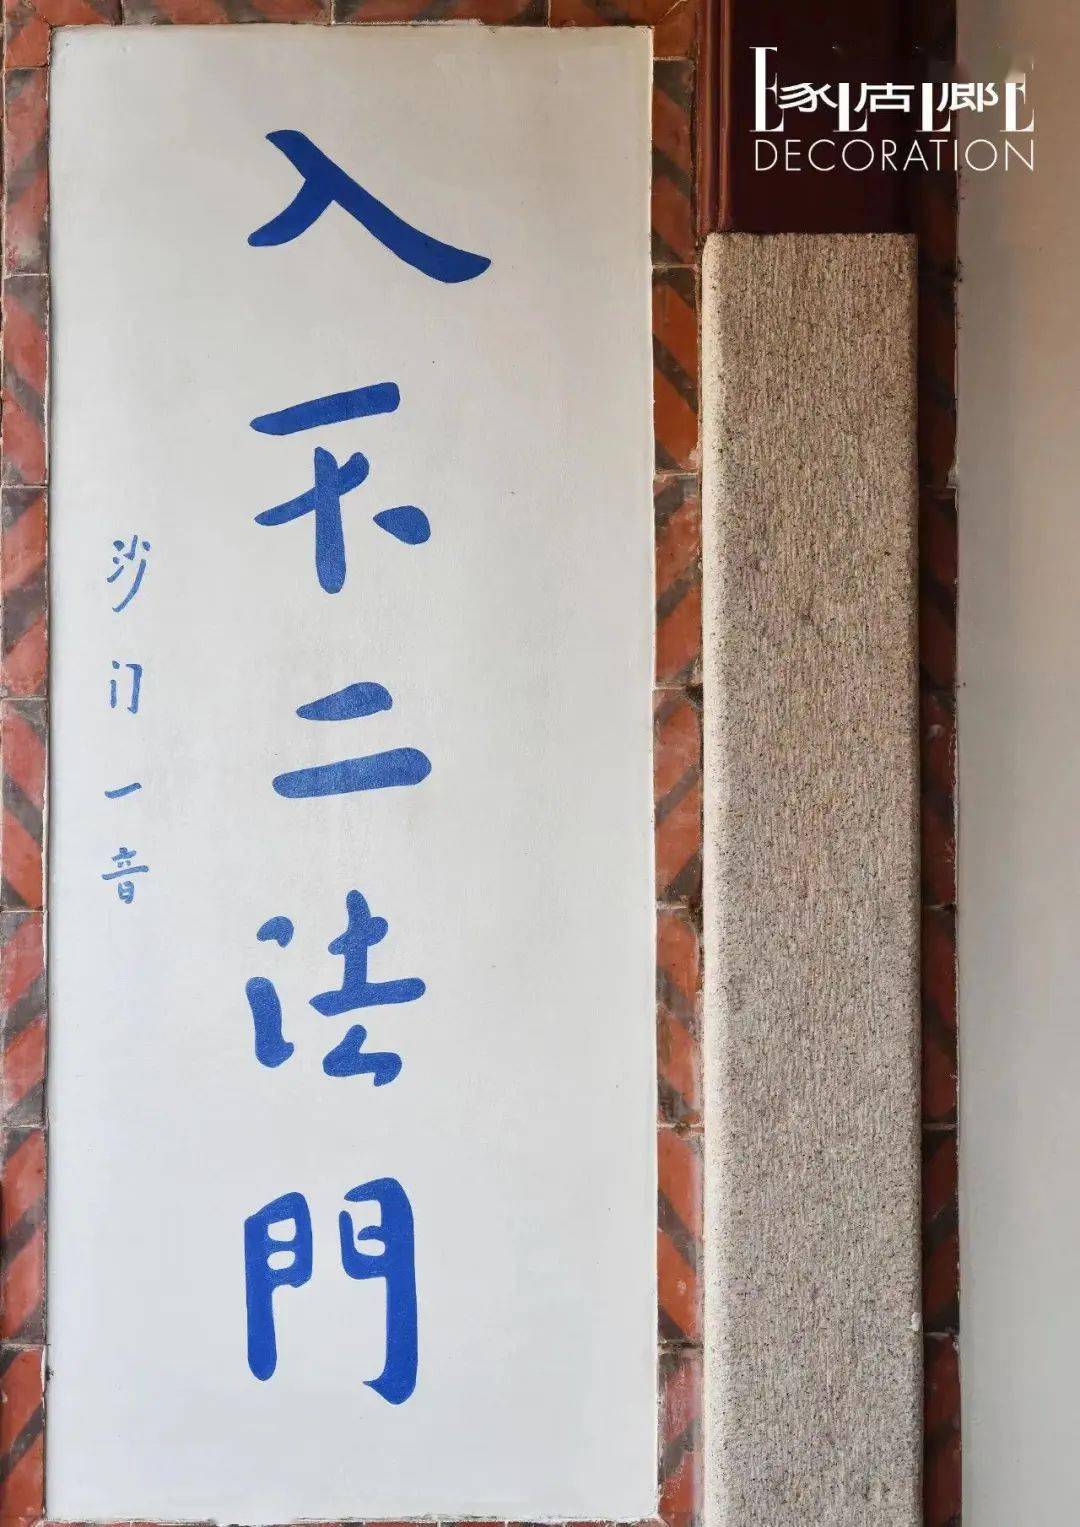 入不二法門
沙门一音
ELLE
家居廊
DECORATION